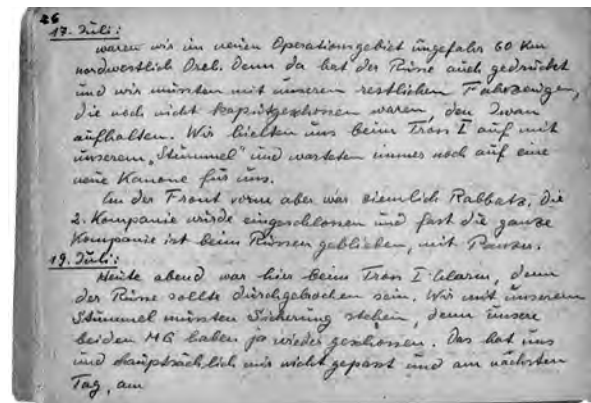 26
17. Juli:
waren wir im neuen Operationsgebiet ungefähr 60 Km
nordwestlich Orel. Denn da hat der Russe auch gedrückt
und wir mussten mit unseren restlichen Fahrzeugen,
die noch nicht kaputtgeschossen waren, den Iwan
aufhalten. Wir hielten uns beim Tross I auf mit
unserem „Stummel" und warteten immer noch auf eine
neue Kanone für uns.
An der Front vorne aber war ziemlich Rabbatz, die
2. Kompanie wurde eingeschlossen und fast die ganze
Kompanie ist beim Russen geblieben, mit Panzer.
19. Juli:
Heute abend war hier beim Tross I Alarm, denn
der Russe sollte durchgebrochen sein. Wir mit unserem
Stummel mussten Sicherung stehen, denn unsere
beiden MG haben ja wieder geschossen. Das hat uns
und hauptsächlich mir nicht gepasst und am nächsten
Tag, am